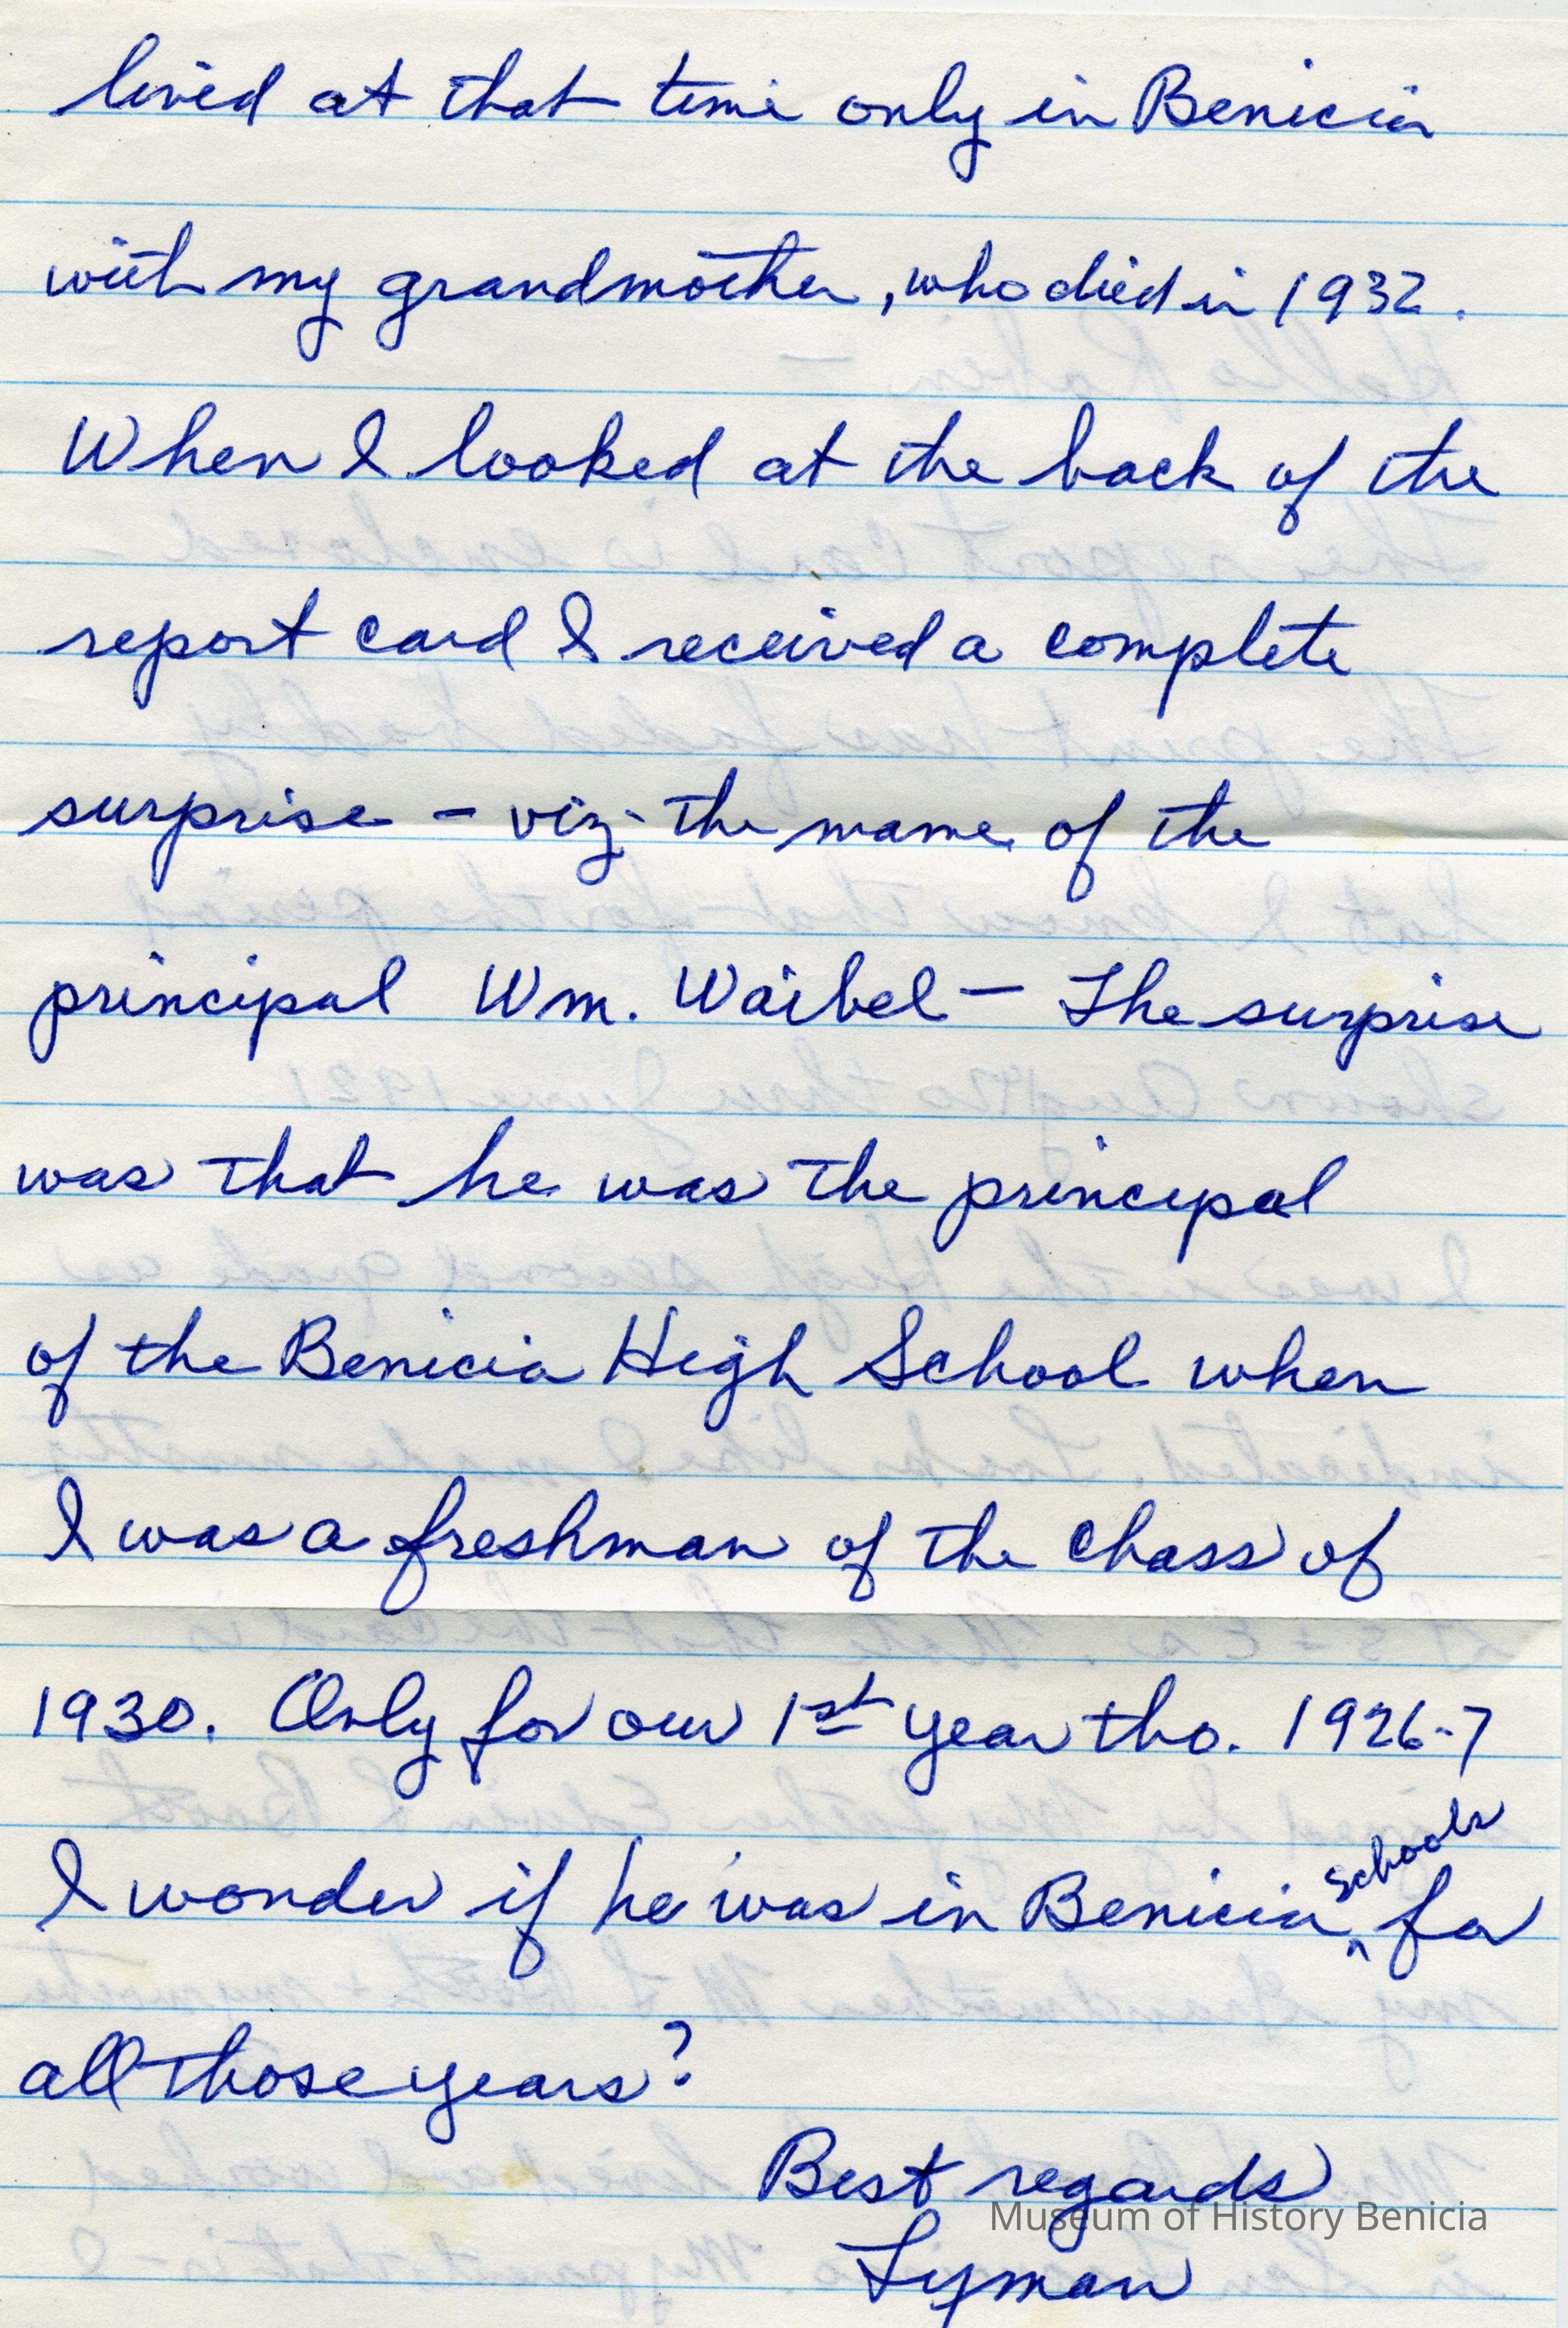 lived at that time only in Benicia
with my grandmother, who died in 1932.
When I looked at the back of the
report card I received a complete
surprise - viz. the name of the
principal Wm. Waibel - The surprise
was that he was the principal
of the Benicia High School when
I was a freshman of the class of
1930. Only for our 1st year tho. 1926-7
I wonder if he was in Benicia ^schools for
all those years?
Best regards
Museum of History Benicia
Lyman